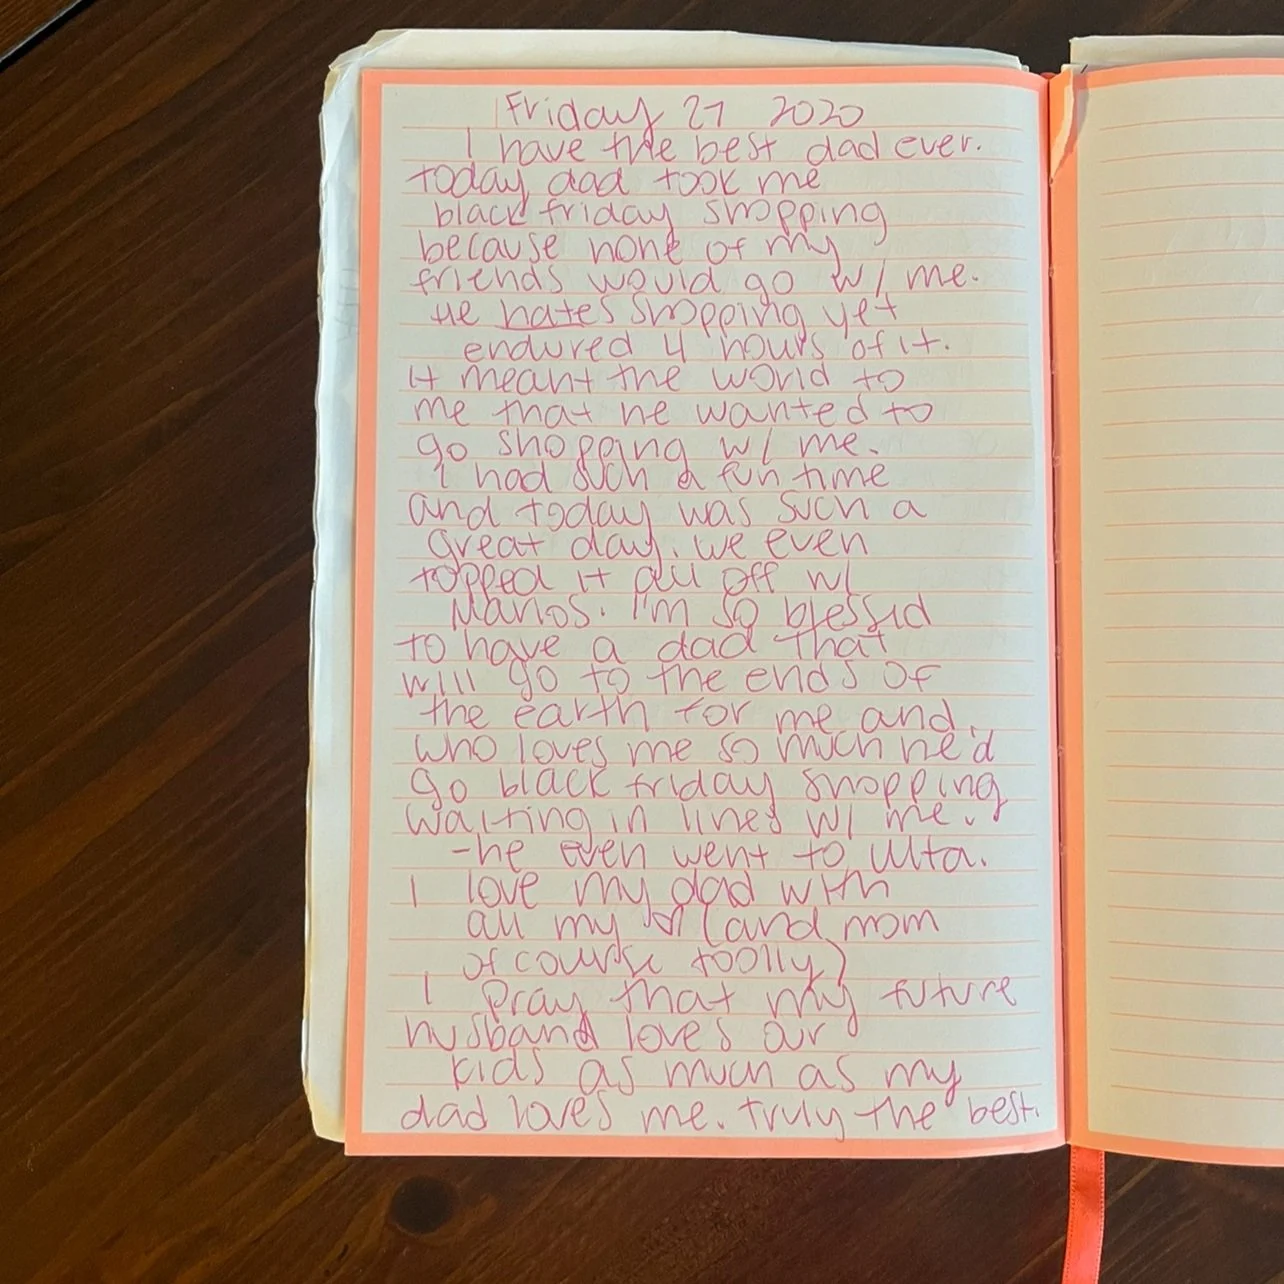 Friday 27 2020
I have the best dad ever.
today dad took me
black friday shopping
because none of my
friends would go w/ me.
He hates shopping yet
endured 4 hours of it.
It meant the world to
me that he wanted to
go shopping w/ me.
I had such a fun time
and today was such a
great day. we even
topped it all off w/
Nanos. I'm so blessed
to have a dad that
will go to the ends of
the earth for me and
who loves me so much he'd
go black friday shopping
waiting in lines w/ me.
-he even went to ulta.
I love my dad with
all my (and mom
of course
I pray that my future
husband loves our
kids as much as my
dad loves me. truly the best.